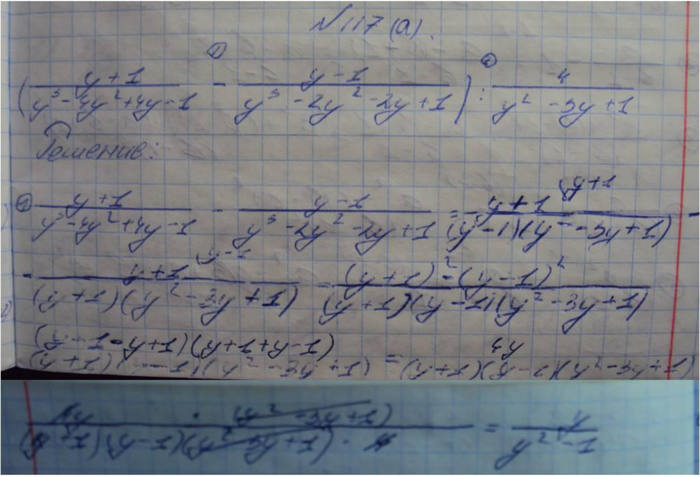 №117 (а).
1) 2)
( (y+1)/(y³-4y²+4y-1) - (y-1)/(y³-2y²-2y+1) ) : 4/(y²-3y+1)
Решение:
1) (y+1)/(y³-4y²+4y-1) - (y-1)/(y³-2y²-2y+1) = (y+1)/((y-1)(y²-3y+1)) (y+1
- (y-1)/((y+1)(y²-3y+1)) = ((y+1)²-(y-1)²)/((y+1)(y-1)(y²-3y+1))
((y+1-y+1)(y+1+y-1))/((y+1)(y-1)(y²-3y+1)) = 4y/((y+1)(y-1)(y²-3y+1))
(4y · (y²-3y+1))/((y+1)(y-1)(y²-3y+1) · 4) = y/(y²-1)